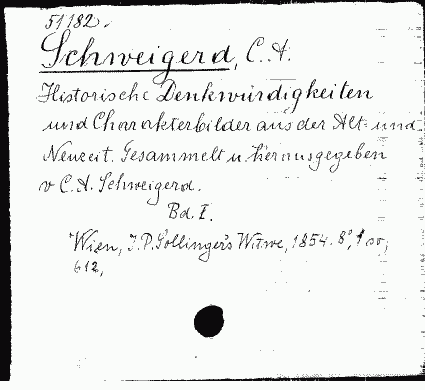 51182.
Schweigerd, C. A.
Historische Denkwürdigkeiten
und Charakterbilder aus der Alt- und
Neuzeit. Gesammelt u. herausgegeben
v C. A. Schweigerd.
Bd. I.
Wien, J. P. Sollinger's Witwe, 1854. 8°,
612,